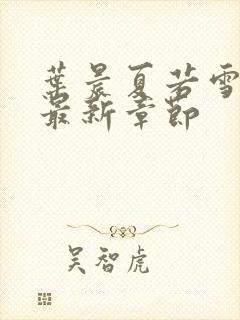 葉晨夏若雪
最新章節
吴智虎